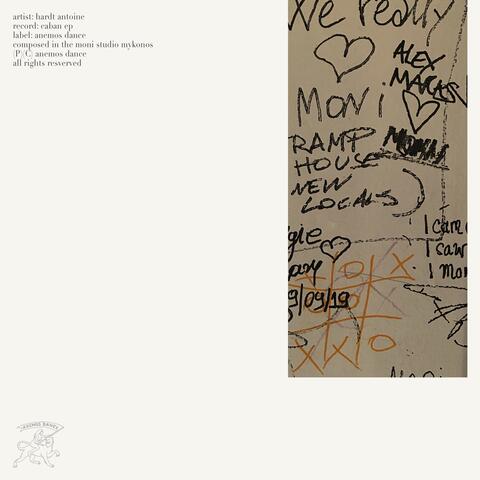 artist: hardt antoine
record: caban ep
label: anemos dance
composed in the moni studio mykonos
(P)(C) anemos dance
all rights resverved
We really
ALEX
MONi
RAMP
HOUSE
NEW
LOCALS
I came
I saw
X O X
9/09/19
X X O
ANEMOS DANCE